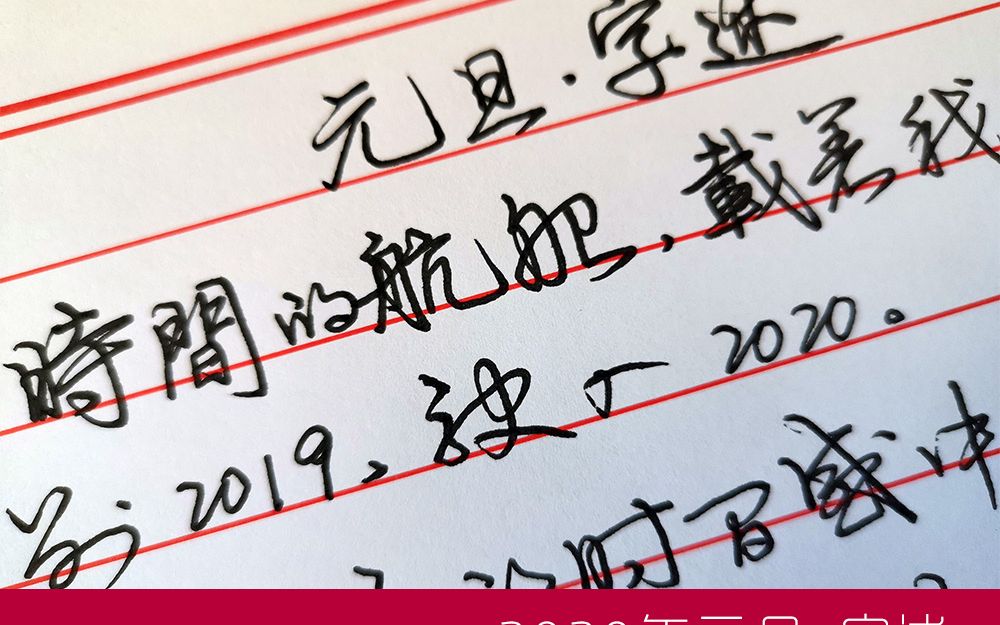 元旦·字迹
時間的航船,戴着我
别 2019,驶向 2020。
时间感
2020年元旦·字迹